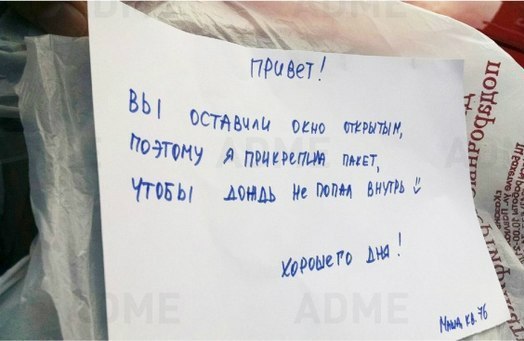 ПРИВЕТ!
ВЫ ОСТАВИЛИ ОКНО ОТКРЫТЫМ,
ПОЭТОМУ Я ПРИКРЕПИЛА ПАКЕТ,
ЧТОБЫ ДОЖДЬ НЕ ПОПАЛ ВНУТРЬ
ХОРОШЕГО ДНЯ!
МАША КВ. 76
подарочных
ADME
ADME
ADME
ADME